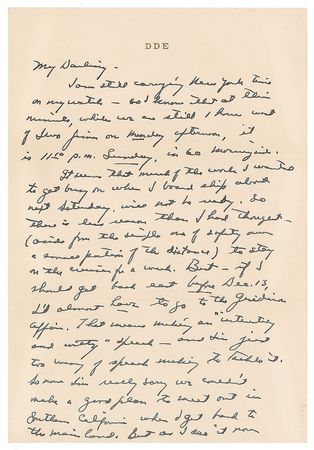 DDE
My Darling -
I am still carrying New York time
on my watch - so I know that at this
minute, while we are still 1 hour west
of Iwo Jima on Monday afternoon, it
is 11:50 p.m. Sunday, in
It seems that much of the work I wanted
to get busy on when I board ship about
next Saturday, will not be ready. So
there is less reason than I had thought -
(aside from the simple one of safety over
a small portion of the distance) to stay
on the cruiser for a week. But - if I
should get back east before Dec. 13,
I'd almost have to go to the Gridiron
affair. That means making an "interesting
and witty" speech - and I'm just
too weary of speech making to tackle it.
So now I'm really sorry we couldn't
make a good plan to meet out in
Southern California when I get back to
the mainland. But as I see it now